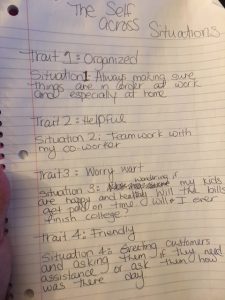 The Self
Across Situations
Trait 1: Organized
Situation 1: Always making sure
things are in order at work
and especially at home
Trait 2: Helpful
Situation 2: Teamwork with
my co-worker
Trait 3: Worry wart
Situation 3: wondering if my kids
are happy and healthy Will the bills
get paid on time Will I ever
finish college?
Trait 4: Friendly
Situation 4: Greeting customers
and asking them if they need
assistance or ask them how
was there day